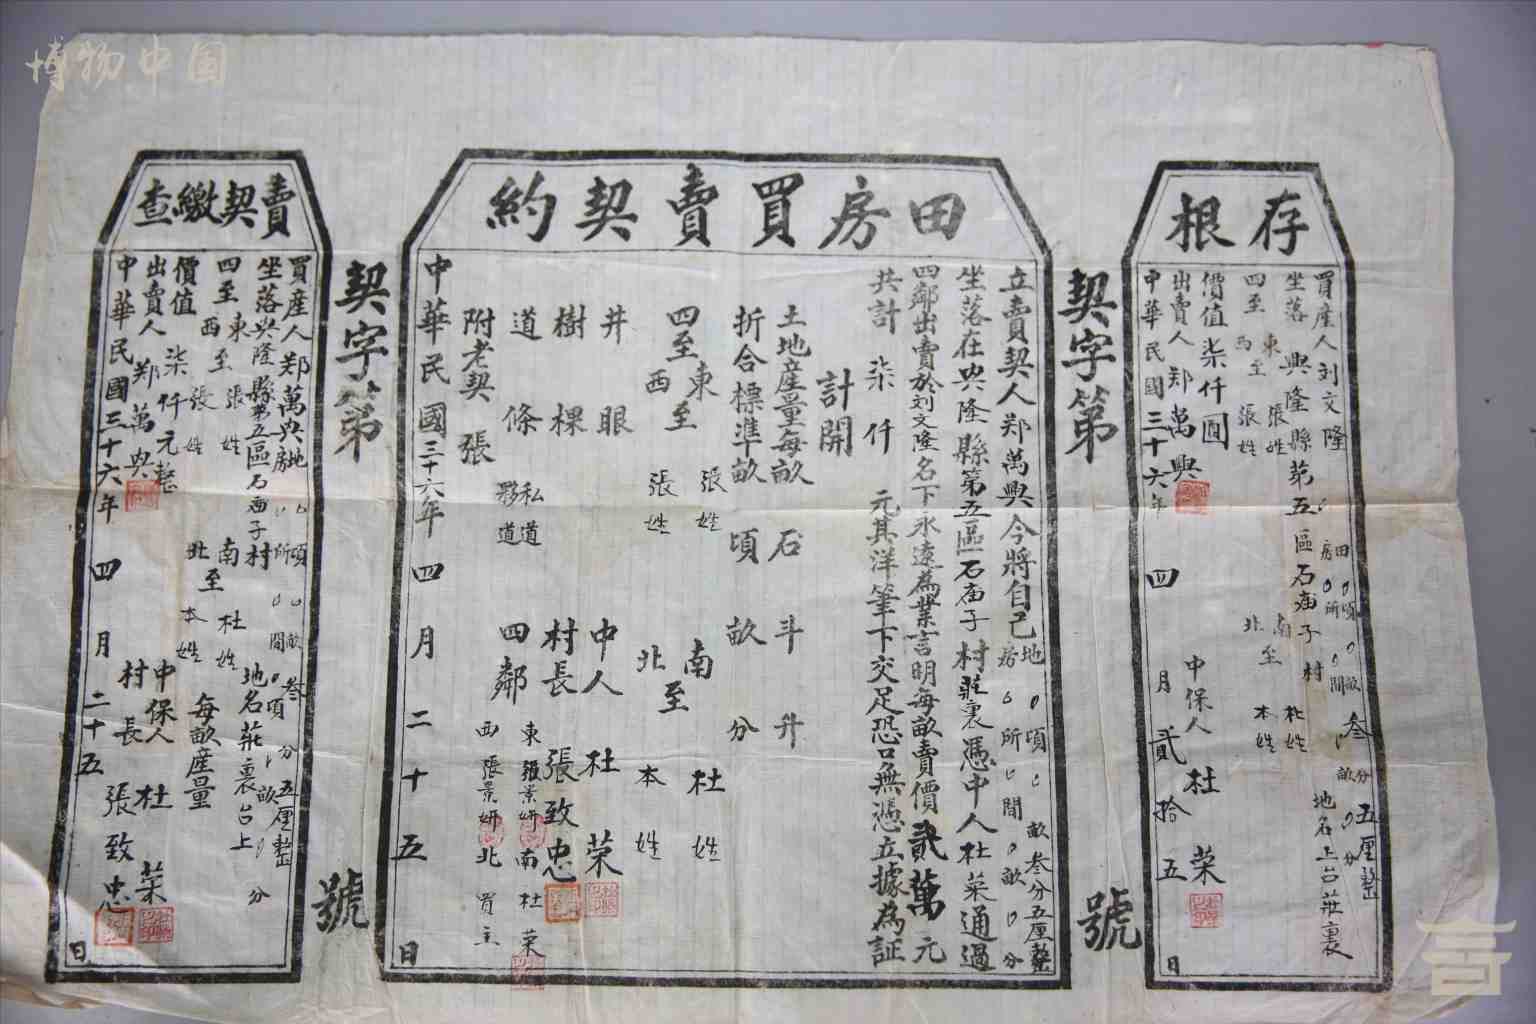 博物中国
存根
買産人刘文隆
田 0頃 0畝 叁分五厘整
房 0所 0間
坐落 興隆縣第五區石庙子村
地名上台莊裏
四至 東至 張姓 南至 杜姓
西至 張姓 北至 本姓
價值柒仟圓
出賣人郑萬興 中保人 杜荣
中華民國三十六年 四月貳拾五日
契字第 號
田房買賣契約
立賣契人郑萬興今將自己
地 0頃 0畝叁分五厘整
房 0所 0間
坐落在興隆縣第五區石庙子村莊裏憑中人杜荣通過
四鄰出賣於刘文隆名下永遠為業言明每畝賣價貳萬元
共計柒仟元其洋筆下交足恐口無憑立據為証
計開
土地産量每畝 石 斗 升
折合標準畝 頃 畝 分
四至 東至 張姓 南至 杜姓
西至 張姓 北至 本姓
井 眼 中人 杜荣
樹 棵 村長 張致忠
道 條 私道 夥道
四鄰 東 張景妍 南 杜荣
西 張景妍 北 買主
附老契 張
中華民國三十六年四月二十五日
契字第 號
賣契繳查
買産人郑萬興
地 頃 畝叁分五厘整
房 所 間
坐落興隆縣第五區石庙子村 地名莊裏台上
四至 東至 張姓 南至 杜姓
西至 張姓 北至 本姓
每畝産量
價值 柒仟元整
出賣人 郑萬興 中保人 杜荣
村長 張致忠
中華民國三十六年四月二十五日